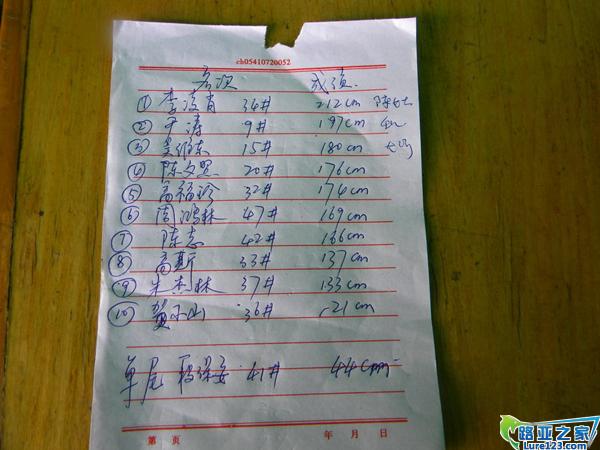 ch05410720052
名次 成绩
① 李凌肖 34# 212cm
② 于涛 9# 197cm
③ 15# 180cm
④ 陈文罡 20# 176cm
⑤ 高福珍 32# 174cm
⑥ 周鸿林 47# 169cm
⑦ 陈志 42# 166cm
⑧ 高斯 33# 137cm
⑨ 朱杰林 37# 133cm
⑩ 贺小山 36# 121cm
单尾 段保安 41# 44cm
第 页 年 月 日
路亚之家
Lure123.com